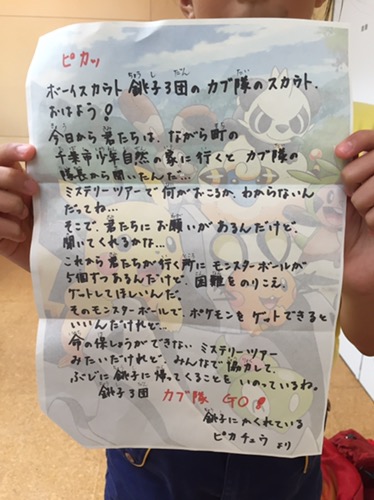 ピカッ
ボーイスカウト 銚子3団の カブ隊のスカウト、
おはよう!
今日から 君たちは、ながら町の
千葉市少年自然の家に行くと カブ隊の
隊長から聞いたんだ…
ミステリーツアーで何がおこるか、わからないん
だってね…
そこで、君たちに お願いがあるんだけど、
聞いてくれるかな…
これから君たちが行く所に モンスターボールが
5個ずつあるんだけど、困難をのりこえ、
ゲットしてほしいんだ。
そのモンスターボールで、ポケモンを ゲットできると
いいんだけれど…
命の保しょうができない ミステリーツアー
みたいだけれど、みんなで協力して、
ぶじに 銚子に帰ってくることを いのっているね。
銚子3団 カブ隊 GO!
銚子にかくれている
ピカチュウ より